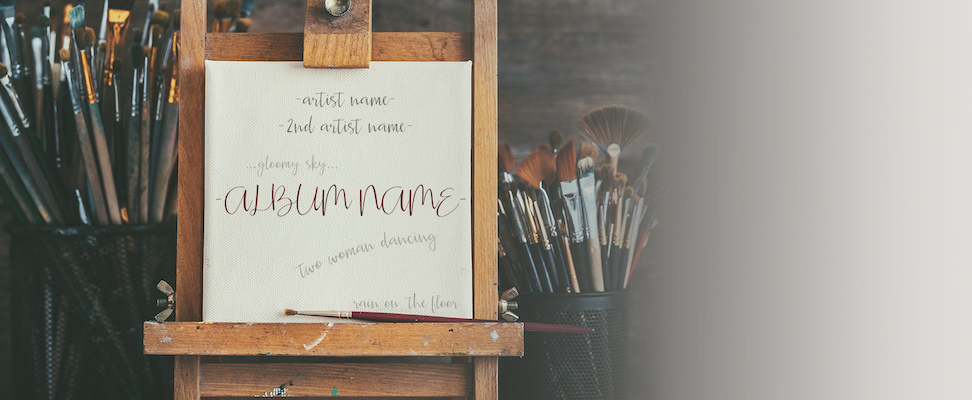 -artist name-
-2nd artist name-
...gloomy sky...
-ALBUM NAME-
two woman dancing
rain on the floor